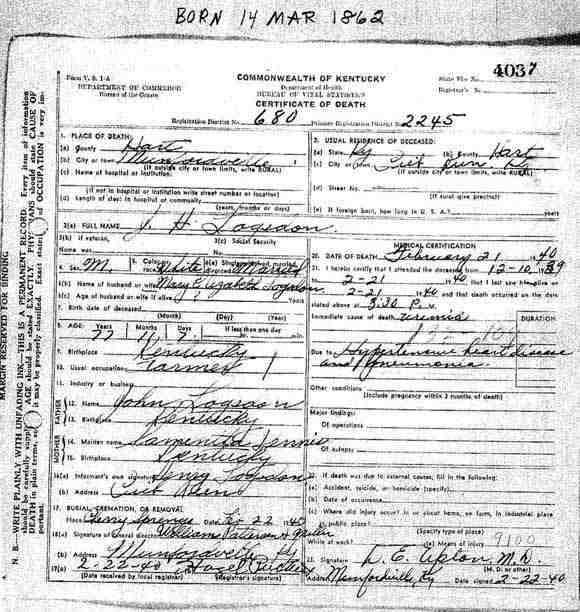 BORN 14 MAR 1862
Form V. S. 1-A
DEPARTMENT OF COMMERCE
Bureau of the Census
COMMONWEALTH OF KENTUCKY
Department of Health
BUREAU OF VITAL STATISTICS
CERTIFICATE OF DEATH
State File No. 4037
Registrar's No.
Registration District No. 680 Primary Registration District No. 2245
MARGIN RESERVED FOR BINDING
N. B.—WRITE PLAINLY WITH UNFADING INK—THIS IS A PERMANENT RECORD. Every item of information
should be carefully supplied. AGE should be stated EXACTLY. PHYSICIANS should state CAUSE OF
DEATH in plain terms, so it may be properly classified. Exact statement of OCCUPATION is very important.
1. PLACE OF DEATH:
(a) County Hart
(b) City or town Munfordville
(If outside city or town limits, write RURAL)
(c) Name of hospital or institution:
(If not in hospital or institution write street number or location)
(d) Length of stay: In hospital or community
(years, months or days)
2. USUAL RESIDENCE OF DECEASED:
(a) State Ky (b) County Hart
(c) City or town Cub Run Ky
(If outside city or town limits, write RURAL)
(d) Street No.
(If rural give precinct)
(e) If foreign born, how long in U. S. A.? years
3(a) FULL NAME J. H. Logsdon
3(b) If veteran, 3(c) Social Security
Name war No.
4. Sex M. 5. Color or race White 6(a) Single, widowed, married, divorced Married
6(b) Name of husband or wife Mary Elizabeth Logsdon
6(c) Age of husband or wife if alive Years
7. Birth date of deceased
(Month) (Day) (Year)
8. AGE: Years Months Days If less than one day
77 11 7 hr. min.
9. Birthplace Kentucky
10. Usual occupation Farmer
11. Industry or business
FATHER
12. Name John Logsdon
13. Birthplace Kentucky
MOTHER
14. Maiden name Dennis
15. Birthplace Kentucky
16(a) Informant's own signature Henry Logsdon
(b) Address Cub Run
17. BURIAL, CREMATION, OR REMOVAL
Place Cherry Springs Date Feb 22 1940
18(a) Signature of funeral director William
(b) Address Munfordville Ky
19(a) 2-22-40 Hazel
(Date received by local registrar) (Registrar's signature)
MEDICAL CERTIFICATION
20. DATE OF DEATH February 21 1940
21. I hereby certify that I attended the deceased from 12-10 1939
2-21 1940 that I last saw h alive on
2-21 1940 and that death occurred on the date
stated above at 3:30 P. m.
DURATION
Immediate cause of death uremia
Due to Hypertensive heart disease
and Pneumonia
Other conditions
(Include pregnancy within 3 months of death)
Major findings:
Of operations
Of autopsy
22. If death was due to external causes, fill in the following:
(a) Accident, suicide, or homicide (specify)
(b) Date of occurrence
(c) Where did injury occur? in or about home, on farm, in industrial place
in public place?
(Specify type of place)
While at work? (e) Means of injury 9100
23. Signature D. E. Upton, M. D.
(M. D. or other)
Address Munfordville, Ky Date signed 2-22-40